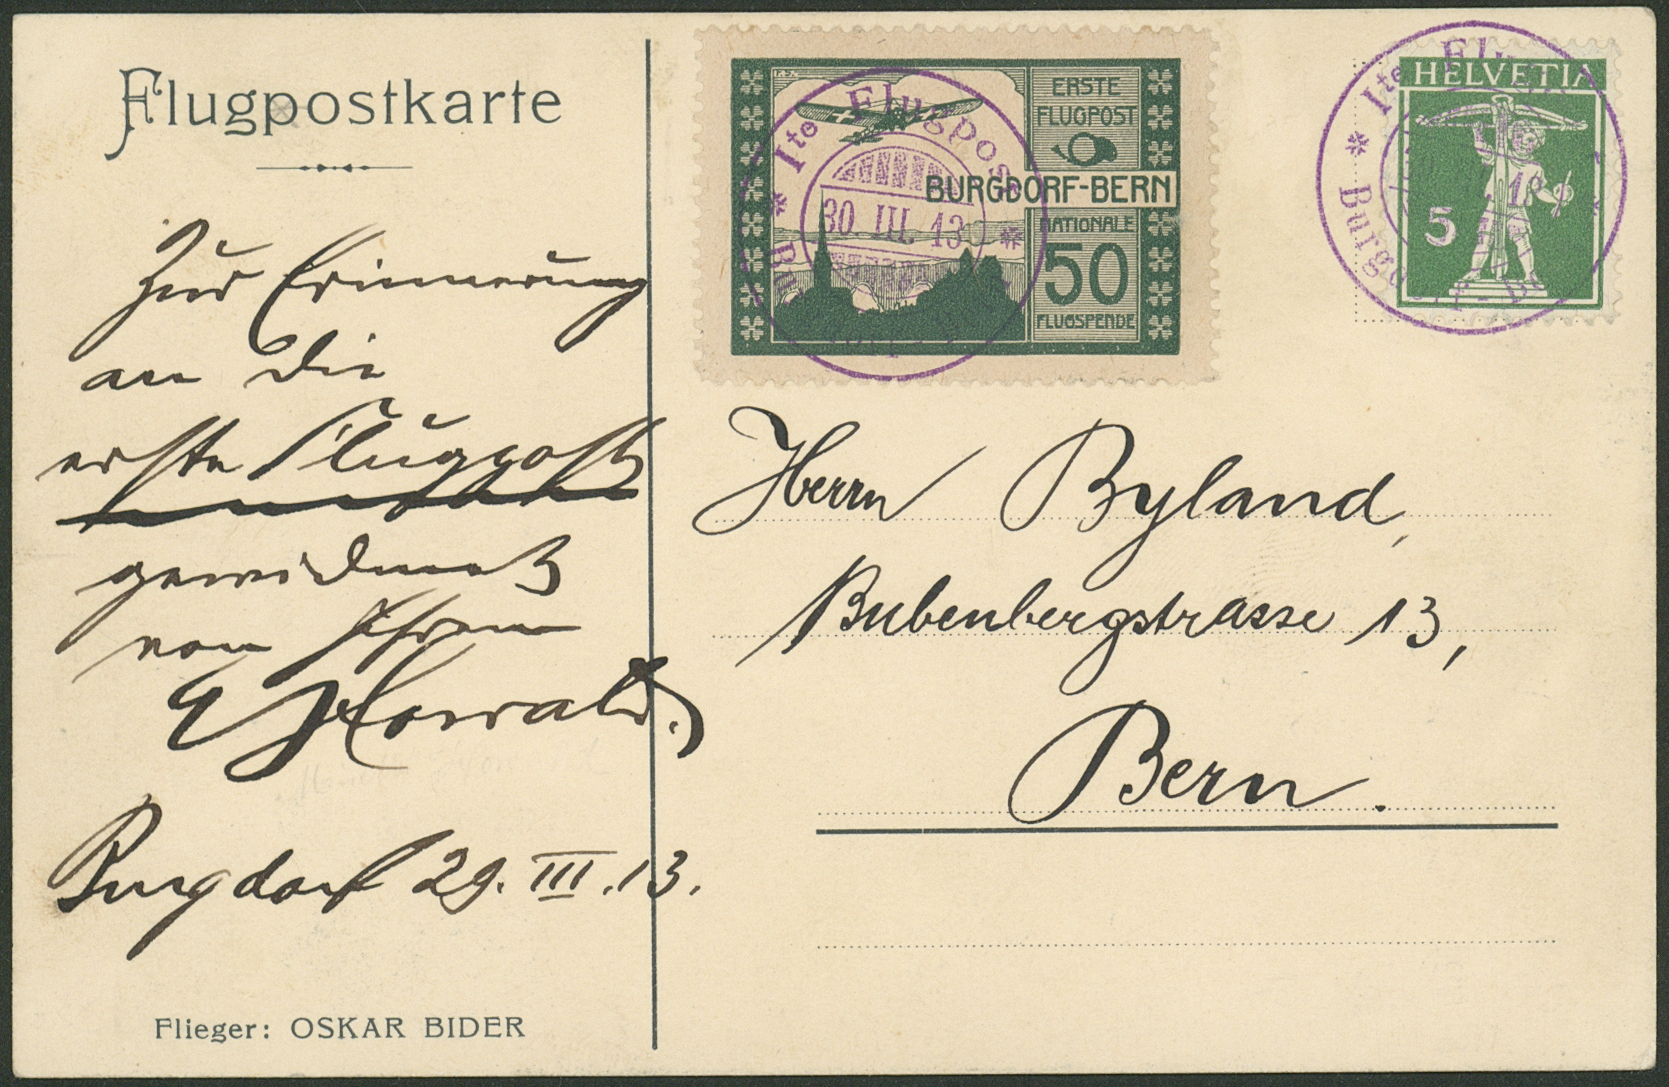 Flugpostkarte
Zur Erinnerung
an die
erste Flugpost
gewidmet
von Ihrem
E Howald.
Burgdorf 29. III. 13.
Flieger: OSKAR BIDER
ERSTE
FLUGPOST
BURGDORF-BERN
NATIONALE
50
FLUGSPENDE
Ite Flugpost
30. III. 13
HELVETIA
5
Ite Flug
Burgdorf - Be
13
Herrn Byland,
Bubenbergstrasse 13,
Bern.